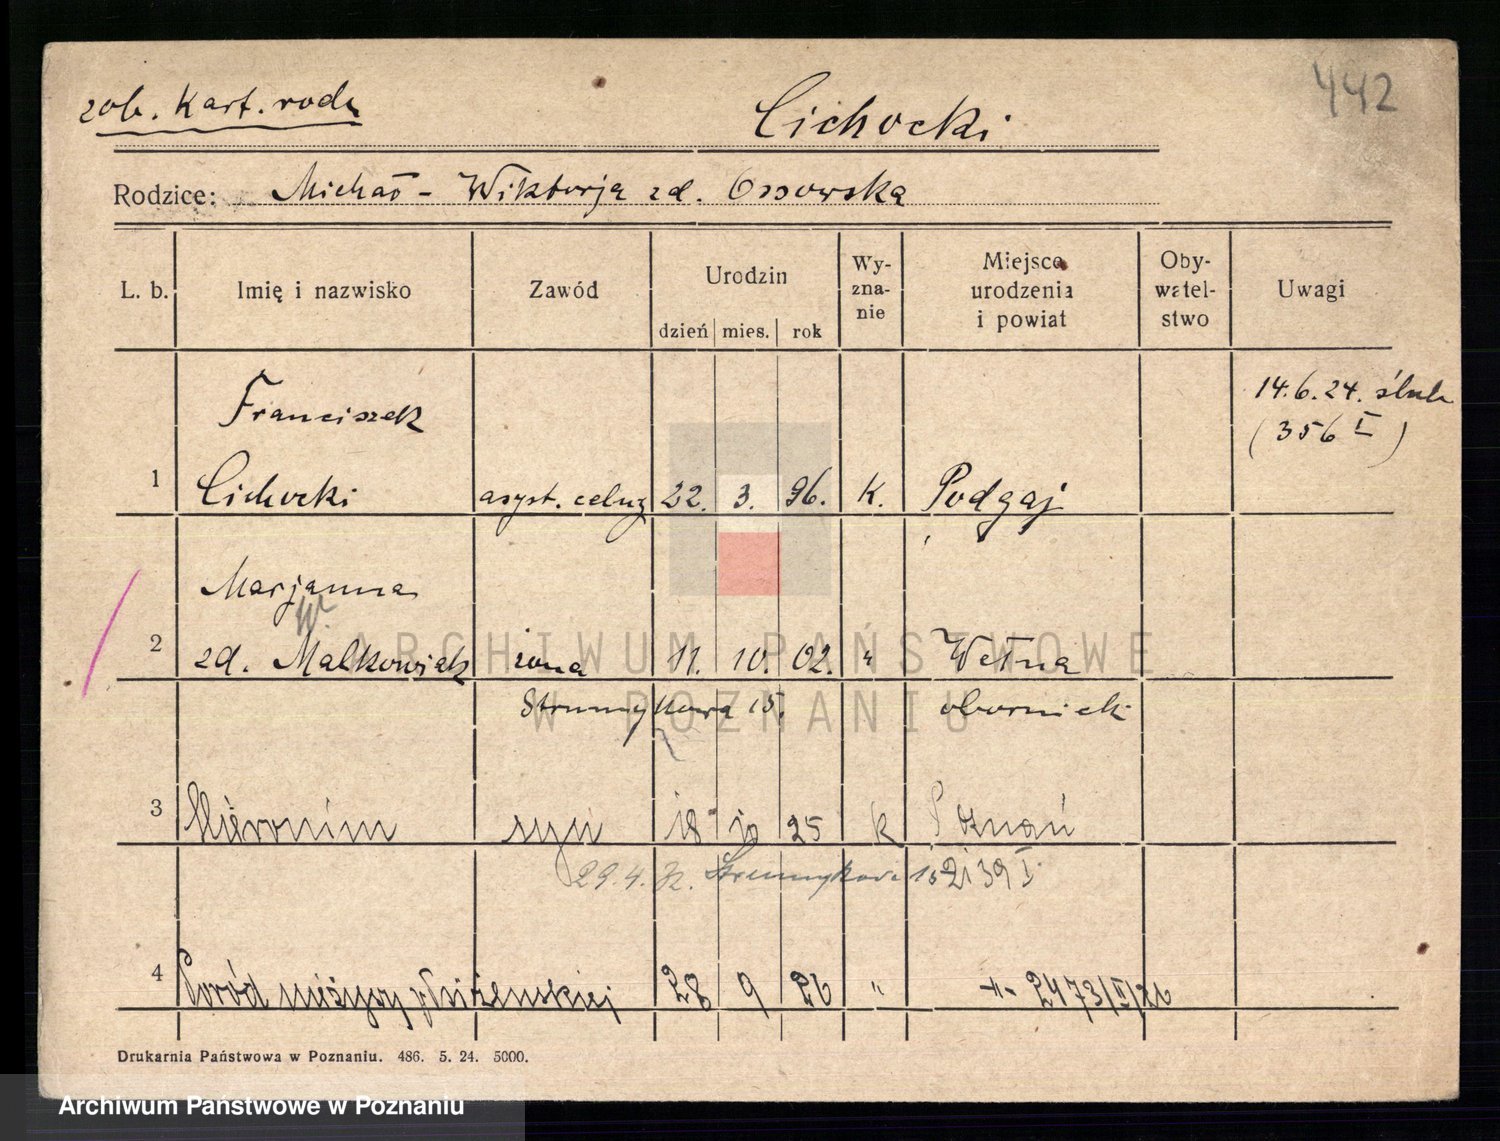 442
zob. Kart. rodz.
Cichocki
Rodzice: Michał - Wiktorja zd. Ossowska
L. b. Imię i nazwisko Zawód Urodzin Wy-zna-nie Miejsce urodzenia i powiat Oby-watel-stwo Uwagi
dzień mies. rok
Franciszek 14.6.24. ślub
(356 I)
1 Cichocki asyst. celny 22. 3. 96. K. Podgaj
Marjanna
W.
2 zd. Małkowiak żona 11. 10. 02. " Wełna
Strumykowa 15. obornicki
3 Hieronim syn 18 10 25 k Poznań
29.4. Strumykowa 15 2139 I
4 Poród nieżywy płci żeńskiej 28 9 26 " -"- 2473/II/26
Drukarnia Państwowa w Poznaniu. 486. 5. 24. 5000.
ARCHIWUM PAŃSTWOWE
W POZNANIU
Archiwum Państwowe w Poznaniu